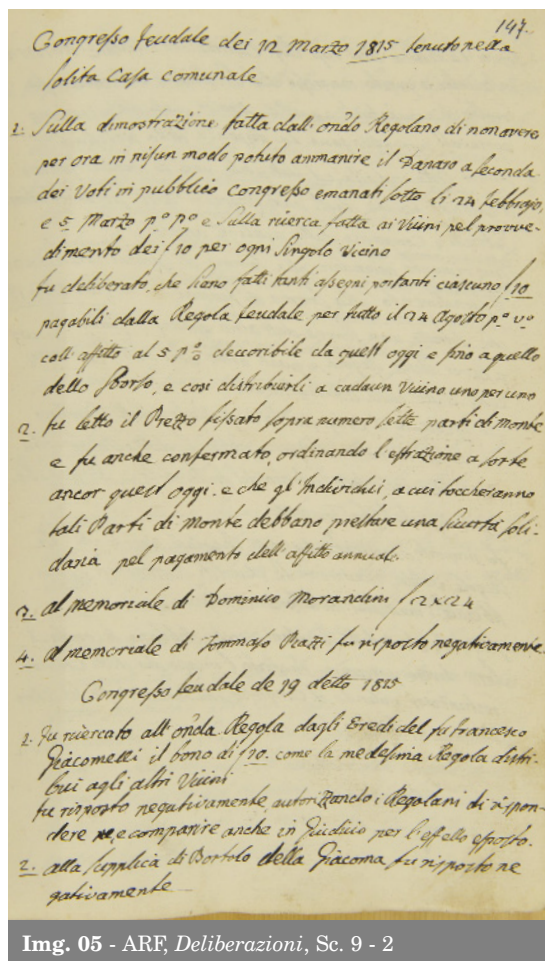 147.
Congresso feudale dei 12 Marzo 1815 tenuto nella
solita Casa comunale
1. Sulla dimostrazione fatta dall' ondo Regolano di non avere
per ora in nisun modo potuto ammanire il Danaro a seconda
dei Voti in pubblico Congresso emanati sotto li 24 febbrajo,
e 5 Marzo po po e sulla ricerca fatta ai Vicini pel provve-
dimento dei f 10 per ogni Singolo Vicino
fu deliberato, che sieno fatti tanti assegni portanti ciascuno f 10
pagabili dalla Regola feudale per tutto il 24 Agosto po vo
coll' affitto al 5 p% decoribile da quest oggi e fino a quello
dello Sborso, e così distribuirli a cadaun Vicino uno per uno
2. fu letto il Prezzo fissato sopra numero sette parti di monte
e fu anche confermato, ordinando l'estrazione a sorte
ancor quest oggi. e che gl' Individui, a cui toccheranno
tali Parti di Monte debbano prestare una Sicurtà soli-
daria pel pagamento dell' affitto annuale.
3. al memoriale di Dominico Morandini
4. Al memoriale di Tommaso Piazzi fu risposto negativamente
Congresso feudale de 19 detto 1815
1. Fu ricercato all' onda Regola dagli Eredi del fu francesco
Giacomelli il bono di f 10. come la medesima Regola distri-
bui agli altri Vicini
fu risposto negativamente, autorizzando i Regolani di rispon-
dere e comparire anche in Giudicio per l'effetto esposto.
2. alla supplica di Bortolo della Giacoma fu risposto ne
gativamente
Img. 05 - ARF, Deliberazioni, Sc. 9 - 2